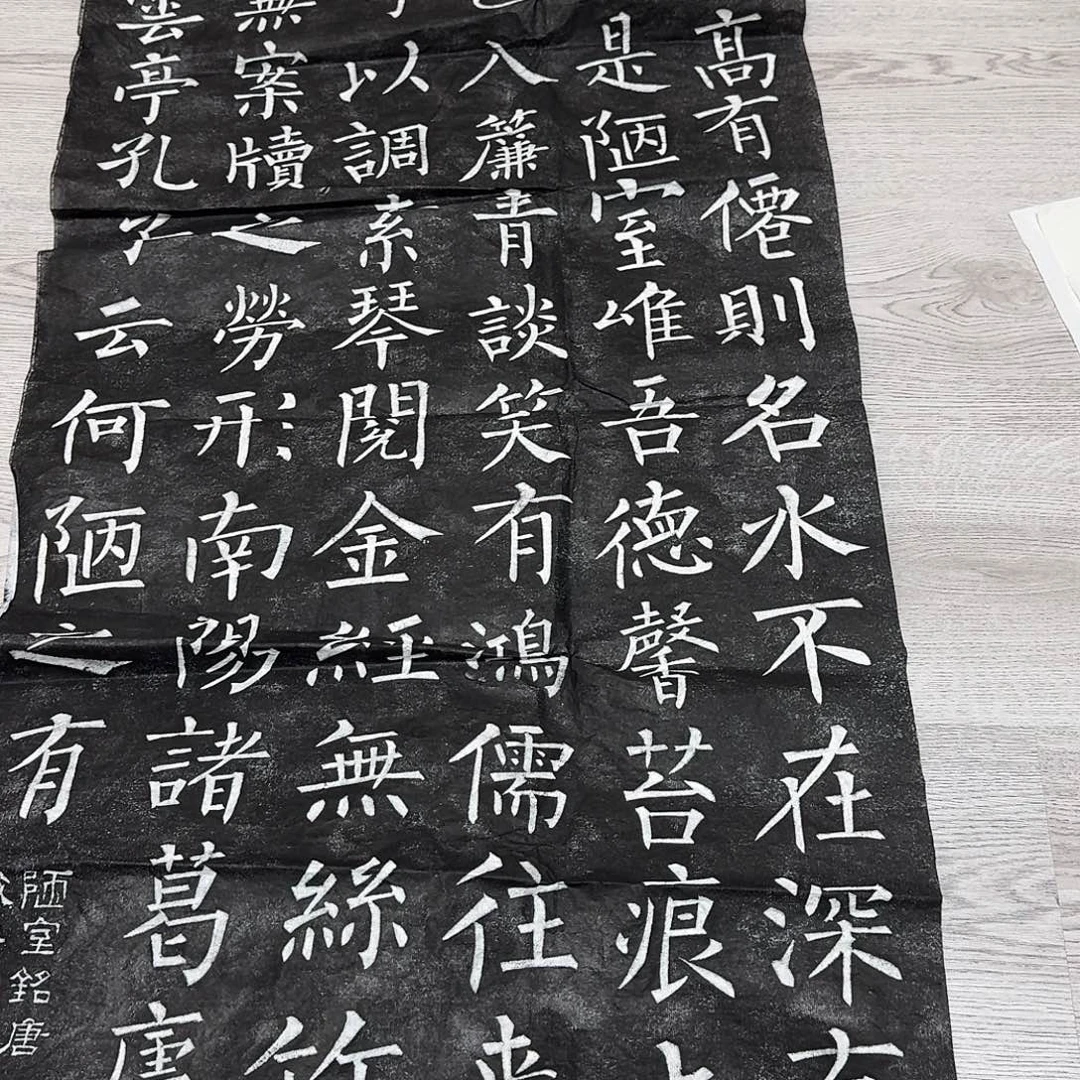 高有僊則名水不在深有
是陋室唯吾德馨苔痕上
入簾青談笑有鴻儒往來
以調素琴閱金經無絲竹
無案牘之勞形南陽諸葛廬
雲亭孔子云何陋之有
陋室銘唐